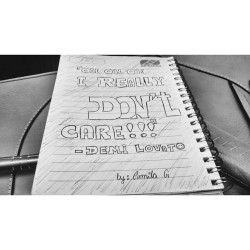 I REALLY
DON'T
CARE!!!"
- DEMI LOVATO
by: Camila G